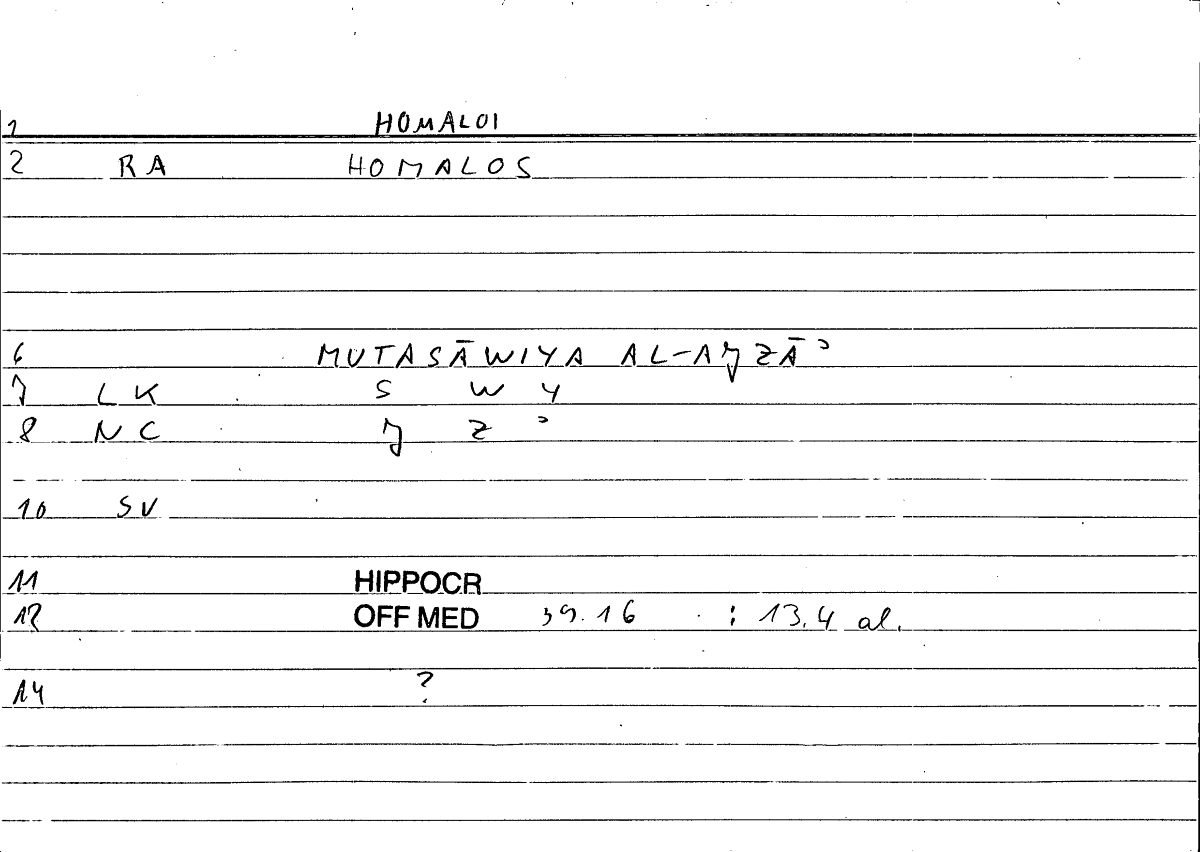 1 HOMALOI
2 RA HOMALOS
6 MUTASĀWIYA AL-AJZĀʾ
7 LK S W Y
8 NC J Z ʾ
10 SV
11 HIPPOCR
12 OFF MED 39.16 : 13.4 al.
14 ?